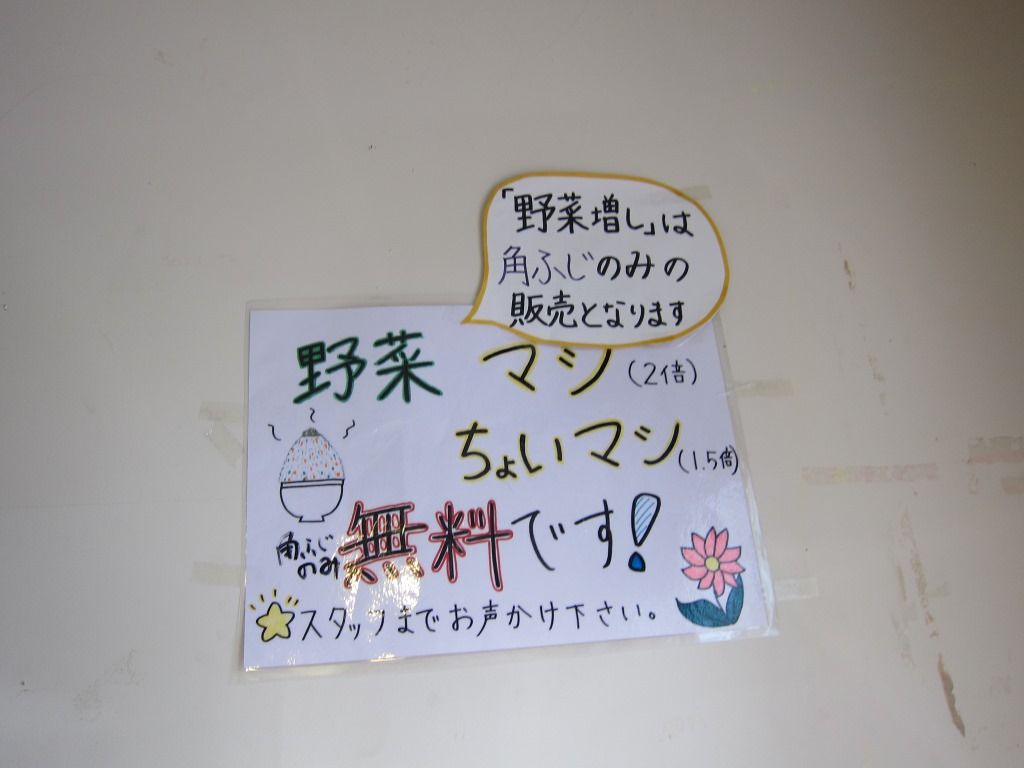 「野菜増し」は
角ふじのみの
販売となります
野菜 マシ (2倍)
ちょいマシ (1.5倍)
角ふじ
のみ
無料です!
スタッフまでお声かけ下さい。